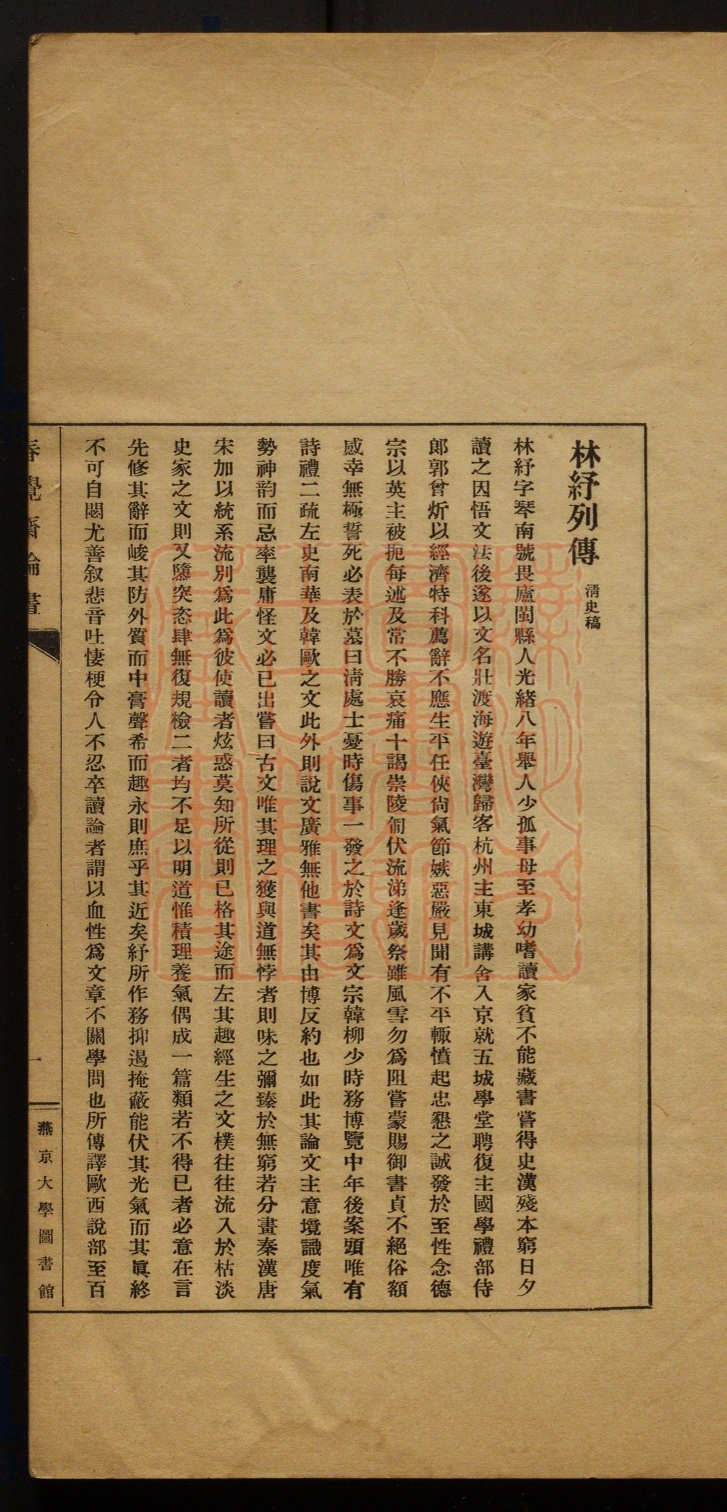 林紓列傳 淸史稿
林紓字琴南號畏廬閩縣人光緒八年舉人少孤事母至孝幼嗜讀家貧不能藏書嘗得史漢殘本窮日夕
讀之因悟文法後遂以文名壯渡海遊臺灣歸客杭州主東城講舍入京就五城學堂聘復主國學禮部侍
郞郭曾炘以經濟特科薦辭不應生平任俠尙氣節嫉惡嚴見聞有不平輒憤起忠懇之誠發於至性念德
宗以英主被扼每述及常不勝哀痛十謁崇陵匍伏流涕逢歲祭雖風雪勿爲阻嘗蒙賜御書貞不絕俗額
感幸無極誓死必表於墓曰淸處士憂時傷事一發之於詩文爲文宗韓柳少時務博覽中年後案頭唯有
詩禮二疏左史南華及韓歐之文此外則說文廣雅無他書矣其由博反約也如此其論文主意境識度氣
勢神韵而忌率襲庸怪文必己出嘗曰古文唯其理之獲與道無悖者則味之彌臻於無窮若分畫秦漢唐
宋加以統系流別爲此爲彼使讀者炫惑莫知所從則已格其途而左其趣經生之文樸往往流入於枯淡
史家之文則又隳突恣肆無復規檢二者均不足以明道惟積理養氣偶成一篇類若不得已者必意在言
先修其辭而峻其防外質而中膏聲希而趣永則庶乎其近矣紓所作務抑遏掩蔽能伏其光氣而其眞終
不可自閟尤善叙悲音吐悽梗令人不忍卒讀論者謂以血性爲文章不關學問也所傳譯歐西說部至百
春覺齋論畫
一
燕京大學圖書館